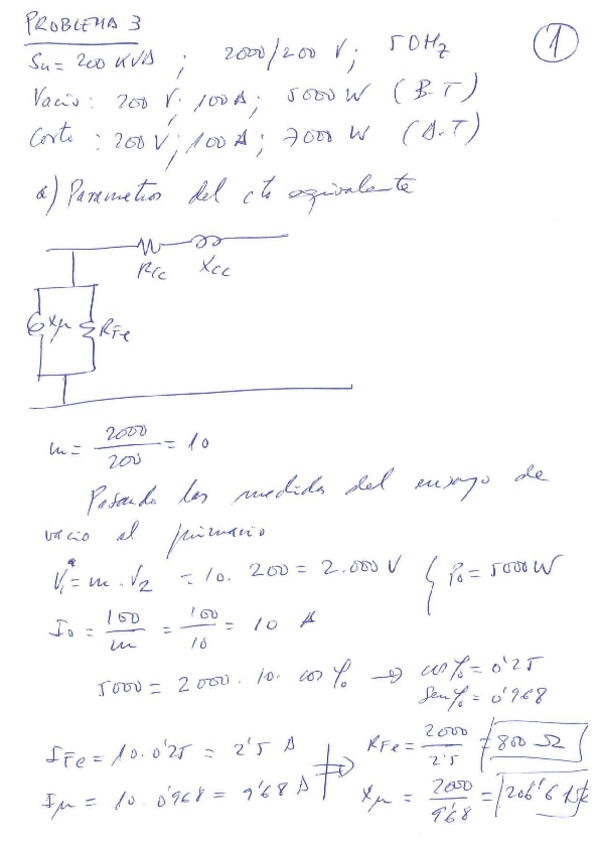 PROBLEMA 3
1
Sn = 200 KVA ; 2000/200 V ; 50Hz
Vacio : 200 V ; 100 A ; 5000 W (B.T)
Corto : 200 V ; 100 A ; 7000 W (A.T)
a) Parametros del cto equivalente
Rcc Xcc
Xμ RFe
m = 2000/200 = 10
Pasando las medidas del ensayo de
vacio al primario
V1* = m · V2 = 10 · 200 = 2.000 V { P0 = 5000 W
I0 = 100/m = 100/10 = 10 A
5000 = 2000 · 10 · cos φ0 → cos φ0 = 0'25
Sen φ0 = 0'968
IFe = 10 · 0'25 = 2'5 A ⇒ RFe = 2000/2'5 = 800 Ω
Iμ = 10 · 0'968 = 9'68 A Xμ = 2000/9'68 = 206'6